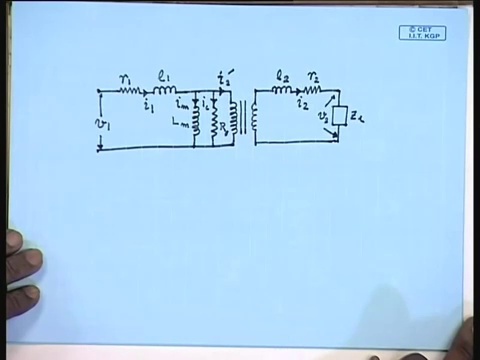 © CET
I.I.T. KGP
r₁ l₁ i₂′ l₂ r₂
i₁ iₘ i꜀ i₂
v₁ Lₘ v₂ Z